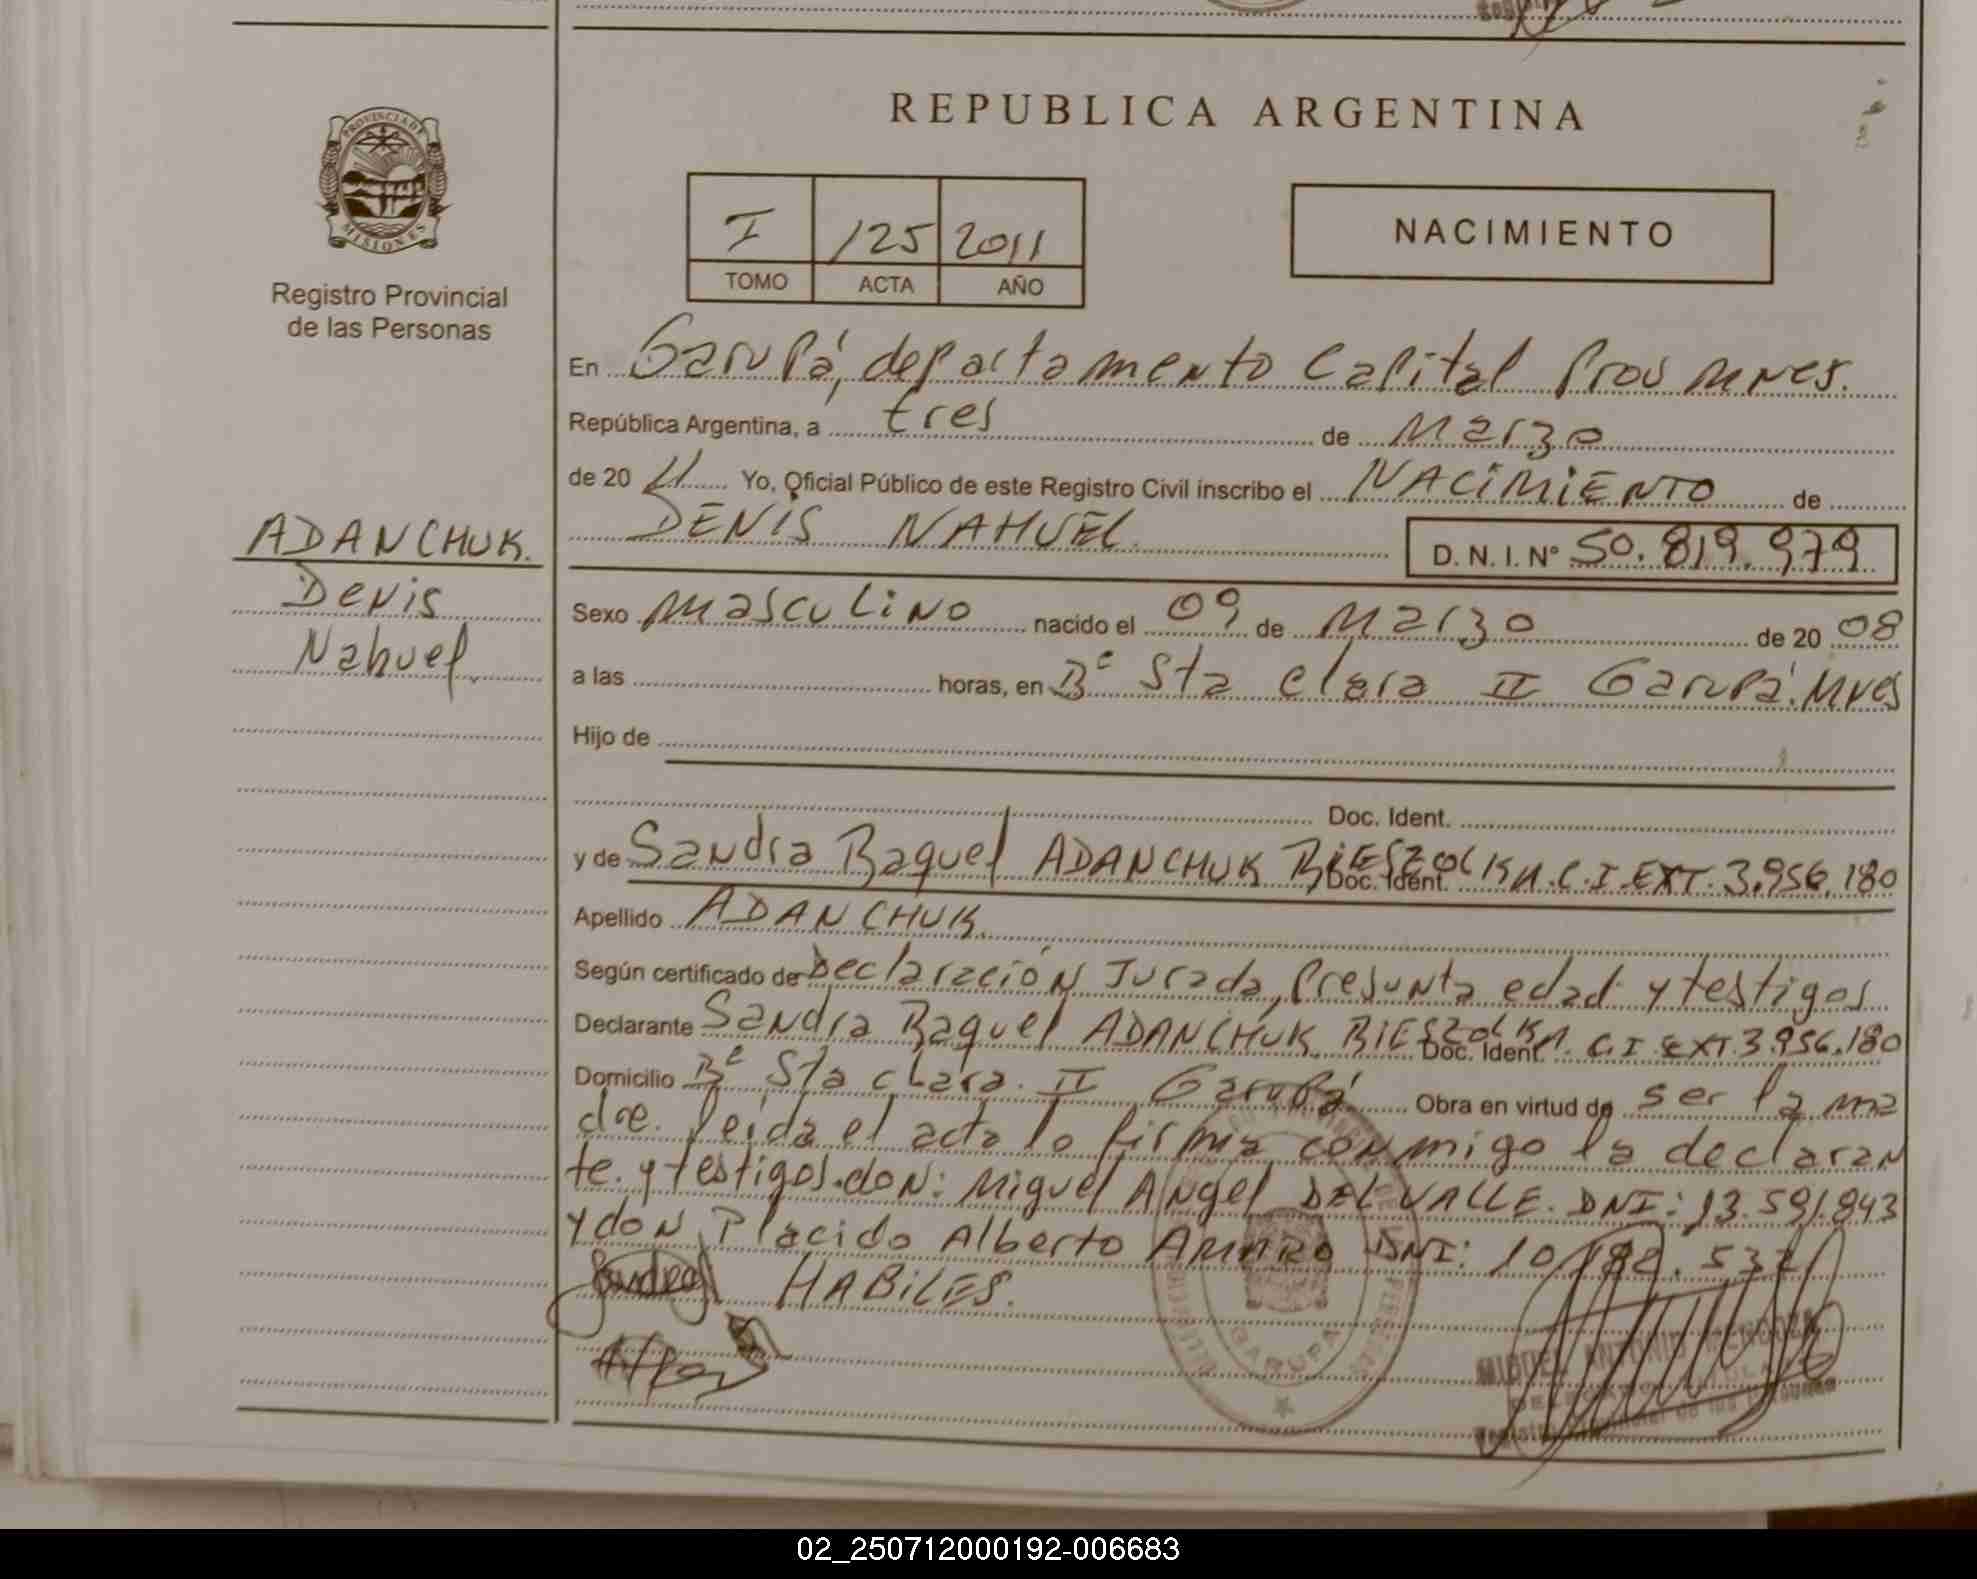 REPUBLICA ARGENTINA
PROVINCIA DE
MISIONES
Registro Provincial
de las Personas
I 125 2011
TOMO ACTA AÑO
NACIMIENTO
En Garupá, departamento Capital Prov Mnes.
República Argentina, a tres de Marzo
de 20 11 Yo, Oficial Público de este Registro Civil inscribo el NACIMIENTO de
DENIS NAHUEL. D. N. I. Nº 50.819.979
ADANCHUK.
Denis
Nahuel.
Sexo Masculino nacido el 09 de Marzo de 20 08
a las horas, en Bº Sta Clara II Garupá. Mnes
Hijo de
Doc. Ident.
y de Sandra Raquel ADANCHUK BIESZOLKA. Doc. Ident. C.I. EXT. 3.956.180
Apellido ADANCHUK.
Según certificado de Declaración Jurada, Presunta edad y testigos
Declarante Sandra Raquel ADANCHUK BIESZOLKA. Doc. Ident. C.I. EXT. 3.956.180
Domicilio Bº Sta Clara. II Garupá Obra en virtud de ser la ma
dre. leida el acta lo firma conmigo la declaran
te. y testigos. don: Miguel Angel DEL VALLE. DNI: 13.591.843
y don Placido Alberto DNI:
HABILES.
GARUPA
MIGUEL ANTONIO MENDOZA
02_250712000192-006683